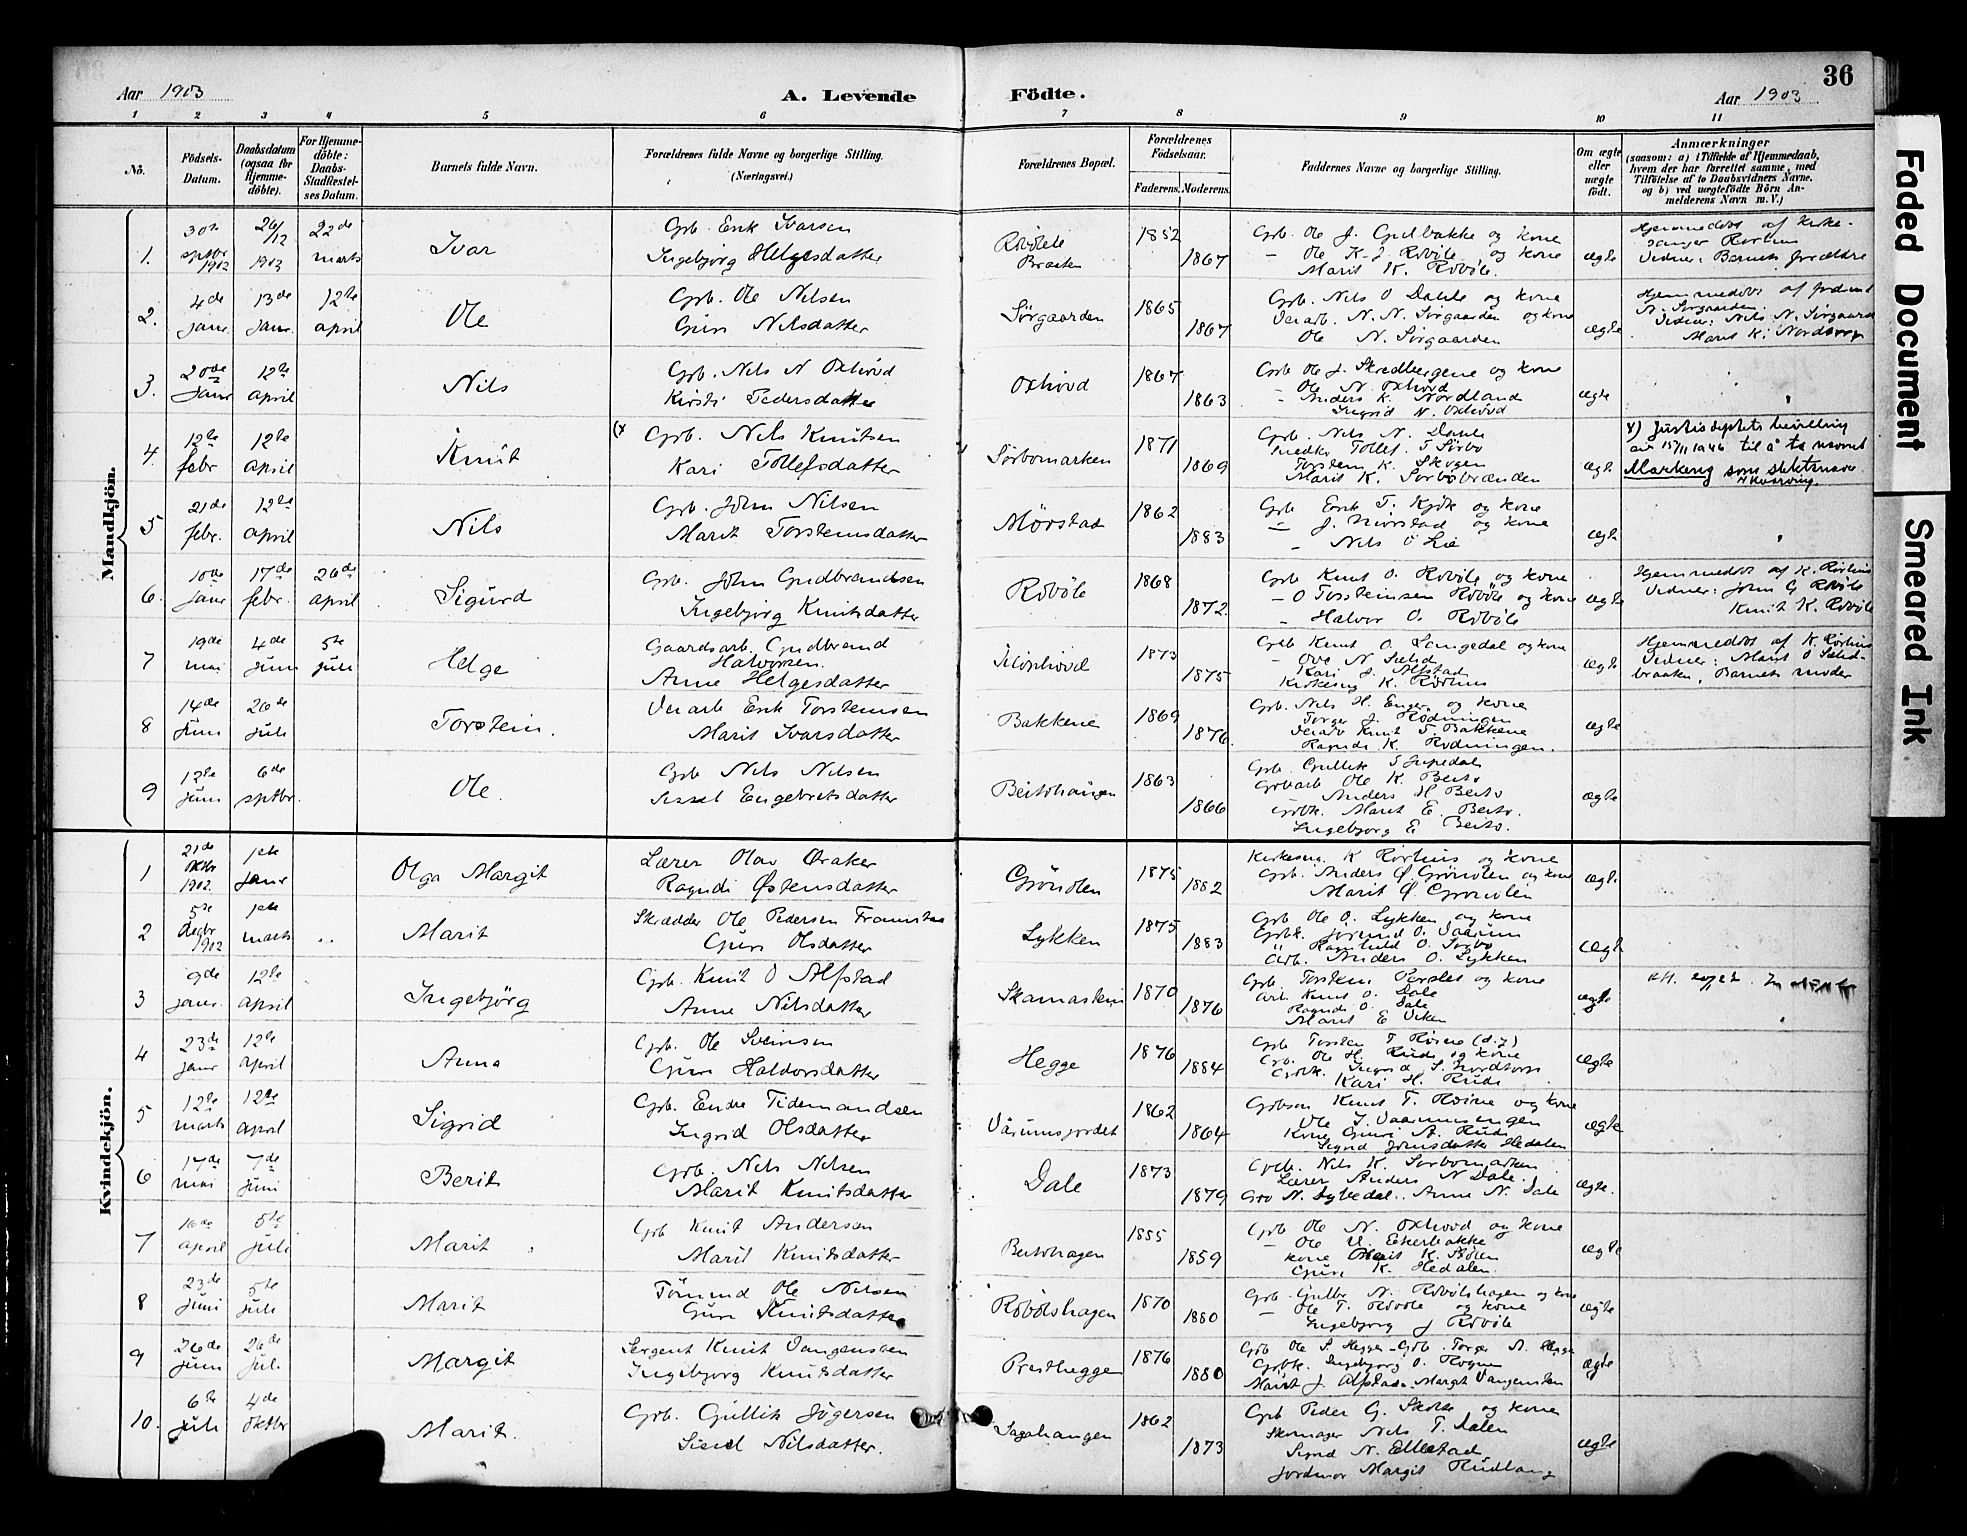 36
Aar 1903
A. Levende
Födte.
Aar 1903
1 2 3 4 5 6 7 8 9 10 11
No.
Födsels-Datum.
Daabsdatum (ogsaa for Hjemme-döbte).
For Hjemme-döbte: Daabs-Stadfæstel-ses Datum.
Barnets fulde Navn.
Forældrenes fulde Navne og borgerlige Stilling.
(Næringsvei.)
Forældrenes Bopæl.
Forældrenes Födselsaar.
Faderens. Moderens.
Faddernes Navne og borgerlige Stilling.
Om ægte eller uægte födt.
Anmærkninger
(saasom: a) i Tilfælde af Hjemmedaab,
hvem der har forrettet samme, med
Tilföielse af to Daabsvidners Navne.
og b) ved uægtefödte Börn An-
melderens Navn m. V.)
Mandkjön.
1. 30te septbr 1902 26/12 1903 22de marts Ivar
Grb. Erik Ivarsen
Ingebjørg Helgesdatter
Robøle Braaten 1852 1867
Grb. Ole J. Gudbakke og kone
- Ole K. J. Robøle og kone
Marit K. Robøle.
ægte
Hjemmedøbt af Kirke-
sanger Rørhus
Vidner: Barnets forældre
2. 4de janr. 13de janr. 12te april Ole
Grb. Ole Nilsen
Guri Nilsdatter
Sørgaarden 1865 1867
Grb. Nils O Dahle og kone
N. N. Sørgaarden og kone
Ole N. Sørgaarden
ægte
Hjemmedøbt af
N. Sørgaarden
Vidner: Nils N. Sørgaard
Marit K. Nordtorp
3. 20de Janr 12te april Nils
Grb. Nils N Oxhovd
Kirsti Pedersdatter
Oxhovd 1867 1863
Grb Ole J. Skredbergene og kone
- Ole N. Oxhovd
- Anders K. Nordland
Ingrid N. Oxhovd
ægte
4. 12te febr 12te april Knut
(x Grb. Nils Knutsen
Kari Tollefsdatter
Sørbomarken 1871 1869
Grb. Nils N. Dahle
Tollef T Sørbo
Torstein K. Skogen
Marit K. Sørbøbraaden
ægte
x) Justisdeptets bevilling
av 15/11 1946 til å ta navnet
Markeng som slektsnavn.
5 21de febr. 12te april Nils
Grb. John Nilsen
Marit Torsteinsdatter
Mørstad 1862 1883
Grb Erik T. Kjøk og kone
- J. Mørstad og kone
- Nils O Lie
ægte
6. 10de janr 17de febr. 26de april Sigurd
Grb. John Gudbrandsen
Ingebjørg Knutsdatter
Robøle 1868 1872.
Grb Knut O. Robøle og kone
- O Torsteinsen Robøle og kone
- Halvor O. Robøle
ægte
Hjemmedøbt af K. Rørhus
Vidner: John G Robøle
Knut K. Robøle
7 19de mai 4de Juni 5te juli Helge
Gaardsarb. Gudbrand
Halvorsen.
Anne Helgesdatter
1873 1875
Grb Knut O. Langedal og kone
Kari J. Alfstad
Kirkesng K. Rørhus
ægte
Hjemmedøbt af K. Rørhus
Vidner: Marit O
braaten, Barnets moder
8 14de Juni 26de Juli Torstein.
Erik Torsteinsen
Marit Ivarsdatter
Bakkene 1869 1876.
Grb. Nils H. Enger og kone
Torger J. Rødningen
Knut T. Bakkene
Ragndi K. Rodningen.
ægte
9 12te Juni 6de septbr. Ole.
Grb Nils Nilsen
Sissel Engebretsdatter
Beitohaugen 1863 1866
Grb. Gullik
Ole K. Beito
Anders H Beito
Marit E. Beito.
Ingebjørg E Beito.
ægte
Kvindekjön.
1 21de Oktbr 1902. 1ste janr Olga Margit
Lærer Olav Øraker
Ragndi Østensdatter
Grøndolen 1875 1882
Kirkesng. K Rørhus og kone
Grb. Anders Ø. Grønolen og kone
Marit Ø Gronolen
ægte
2 5te decbr 1902 1ste marts Marit
Skrædder Ole Pedersen
Guri Olsdatter
Lykken 1875 1883
Grb Ole O. Lykken og kone
Jørund O. Vaarum
Ragnhild O. Sørbo
Arb. Anders O. Lykken
ægte
3 9de janr. 12te april Ingebjörg
Grb. Knut O Alfstad
Anne Nilsdatter
Skamastein 1870 1876
Grb Torstein og kone
Arb. Knut O. Dale
Ragndi O. Dale
Marit E
ægte
4 23de janr 12te april Anna
Grb. Ole Sveinsen
Guri Haldorsdatter
Hegge 1876 1884
Grb Torstein T
Grb. Ole H. Rude og kone
Ingrid S. Nordtorp
Kari H. Rude
ægte
5 12te marts 12te april Sigrid
Grb. Endre Tidemandsen
Ingrid Olsdatter
Vårumsjordet 1862 1864
Knut T. og kone
Ole J.
Kone Guri A. Rude
Sigrid Jonsdatter Hedalen
ægte
6 17de mai 7de Juni Berit
Grb. Nils Nilsen
Marit Knutsdatter
Dale 1873 1879
Grb. Nils K. Sørbomarken
Lærer Anders N Dale.
Gro N. Anne N. Dale
ægte.
7 16de april 5te Juli Marit
Grb Knut Andersen
Marit Knutsdatter
Beitohagen 1855 1859
Grb Ole N. Oxhovd og kone
- Ole U. Ekerbakke
kone Marit K.
Guri K. Hedalen.
ægte
8 23de Juni 5te Juli Marit
Tömmd Ole Nilsen
Guri Knutsdatter
Robølshagen 1870 1880
Grb. N. Robølshagen og kone
- Ole T. Robøle og kone
Ingebjørg J Robøle
ægte
9 26de Juni 26de Juli Margit
Sergent Knut Vangensten
Ingebjørg Knutsdatter
Presthegge 1876 1880
Grb Ole S. Hegge - Grb. Torger A. Hegge
Ingebjørg O. Rogne
Marit J. Alfstad. Margit Vangensten
ægte
10. 6te Juli 4de Oktbr Marit.
Grb. Gullik Jögersen
Sissel Nilsdatter.
Sagahaugen 1862 1873
Grb Peder G. og kone
Skomager Nils T. Dalen
N. Ellestad
Jordmor Margit
ægte
Faded Document
Smeared Ink